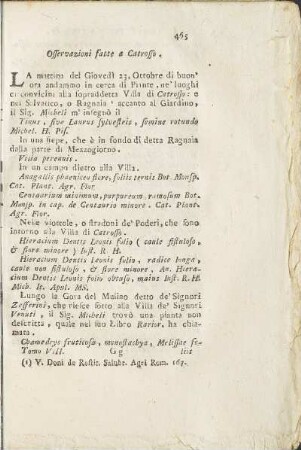 465
Osservazioni fatte a Catrosso.
LA mattina del Giovedì 23. Ottobre di buon'
ora andammo in cerca di Piante, ne' luoghi
circonvicini alla sopraddetta Villa di Catrosso: e
nel Salvatico, o Ragnaia accanto al Giardino,
il Sig. Micheli m' insegnò il
Tinus, sive Laurus sylvestris, semine rotundo
Michel. H. Pis.
In una siepe, che è in fondo di detta Ragnaia
dalla parte di Mezzogiorno.
Visia perennis.
In un campo dietro alla Villa.
Anagallis phoenicea flore, foliis ternis Bot. Monsp.
Cat. Plant. Agr. Flor
Centaurium minimum, purpureum, ramosum Bot.
Monsp. in cap. de Centauris minore. Cat. Plant.
Agr. Flor.
Nelle viottole, o stradoni de' Poderi, che sono
intorno alla Villa di Catrosso.
Hieracium Dentis Leonis folio (caule fistuloso,
& flore minore) Inst. R. H.
Hieracium Dentis Leonis folio, radice longa,
caule non fistuloso, & flore minore, An. Hiera-
cium Dentis Leonis folio obtuso, maius Inst. R. H.
Mich. It. Apul. MS.
Lungo la Gora del Mulino detto de' Signori
Zefferini, che riesce sotto alla Villa de' Signori
Venuti, il Sig. Micheli trovò una pianta non
descritta, quale nel suo Libro Rarior. ha chia-
mata.
Chamadrys fruticosa, monostachya, Melissae fo-
Tomo VIII. G g lio
(1) V. Doni de Restit. Salubr. Agri Rom. 167.